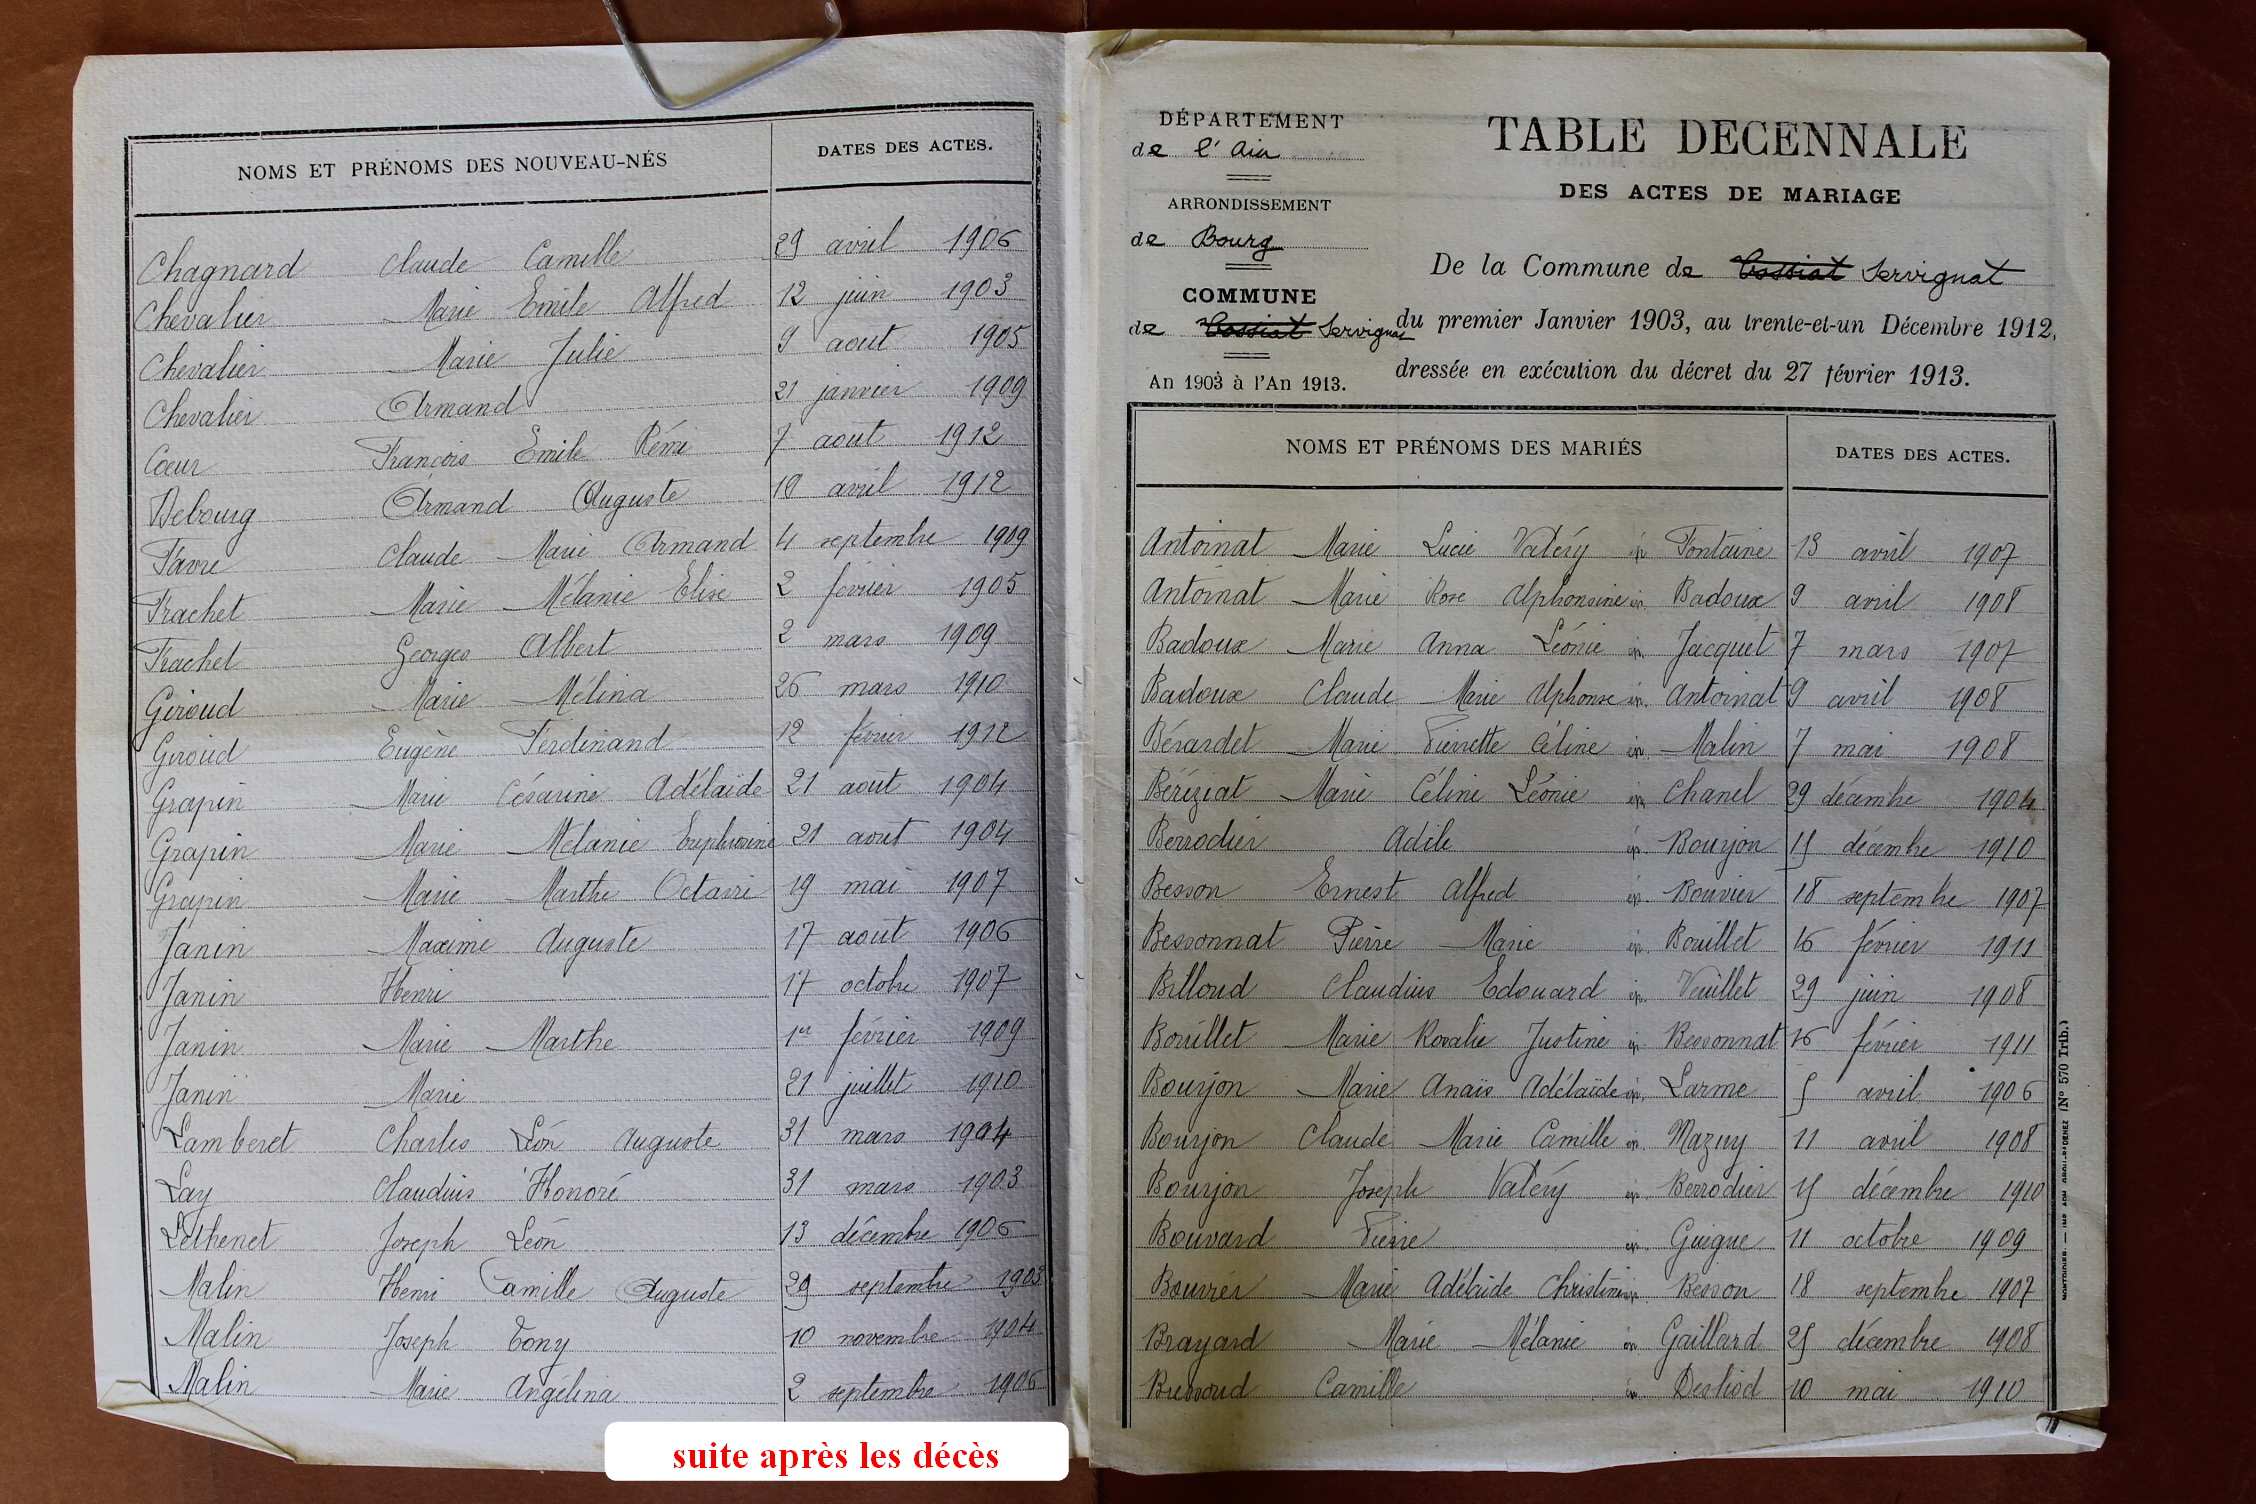 NOMS ET PRÉNOMS DES NOUVEAU-NÉS DATES DES ACTES.
Chagnard Claude Camille 29 avril 1906
Chevalier Marie Emile Alfred 12 juin 1903
Chevalier Marie Julie 9 aout 1905
Chevalier Armand 21 janvier 1909
Coeur François Emile Rémi 7 aout 1912
Debourg Armand Auguste 18 avril 1912
Favre Claude Marie Armand 4 septembre 1909
Frachet Marie Mélanie Elise 2 février 1905
Frachet Georges Albert 2 mars 1909
Giroud Marie Mélina 26 mars 1910
Giroud Eugène Ferdinand 12 février 1912
Grapin Marie Césarine Adélaïde 21 aout 1904
Grapin Marie Mélanie Euphrosine 21 aout 1904
Grapin Marie Marthe Octavie 19 mai 1907
Janin Maxime Auguste 17 aout 1906
Janin Henri 17 octobre 1907
Janin Marie Marthe 1er février 1909
Janin Marie 21 juillet 1910
Lamberet Charles Léon Auguste 31 mars 1904
Lay Claudius Honoré 31 mars 1903
Lethenet Joseph Léon 13 décembre 1906
Malin Henri Camille Auguste 29 septembre 1903
Malin Joseph Tony 10 novembre 1904
Malin Marie Angélina 2 septembre 1906
suite après les décès
DÉPARTEMENT
de l'Ain
ARRONDISSEMENT
de Bourg
COMMUNE
de Cossiat Servignat
An 1903 à l'An 1913.
TABLE DECENNALE
DES ACTES DE MARIAGE
De la Commune de Cossiat Servignat
du premier Janvier 1903, au trente-et-un Décembre 1912,
dressée en exécution du décret du 27 février 1913.
NOMS ET PRÉNOMS DES MARIÉS DATES DES ACTES.
Antoinat Marie Lucie Valéry ép. Fontaine 13 avril 1907
Antoinat Marie Rose Alphonsine ép. Badoux 9 avril 1908
Badoux Marie Anna Léonie ép. Jacquet 7 mars 1907
Badoux Claude Marie Alphonse ép. Antoinat 9 avril 1908
Bérardet Marie Pierrette Céline ép. Malin 7 mai 1908
Béréziat Marie Céline Léonie ép. Chanel 29 décembre 1904
Berrodier Adèle ép. Bourjon 15 décembre 1910
Besson Ernest Alfred ép. Bouvier 18 septembre 1907
Bessonnat Pierre Marie ép. Bouillet 16 février 1911
Billoud Claudius Edouard ép. Veuillet 29 juin 1908
Bouillet Marie Rosalie Justine ép. Bessonnat 16 février 1911
Bourjon Marie Anaïs Adélaïde ép. Larme 5 avril 1906
Bourjon Claude Marie Camille ép. Mazuy 11 avril 1908
Bourjon Joseph Valéry ép. Berrodier 15 décembre 1910
Bouvard Pierre ép. Guigue 11 octobre 1909
Bouvier Marie Adélaïde Christine ép. Besson 18 septembre 1907
Brayard Marie Mélanie ép. Gaillard 25 décembre 1908
Bressoud Camille ép. Desliod 10 mai 1910
(N° 570 Trib.)